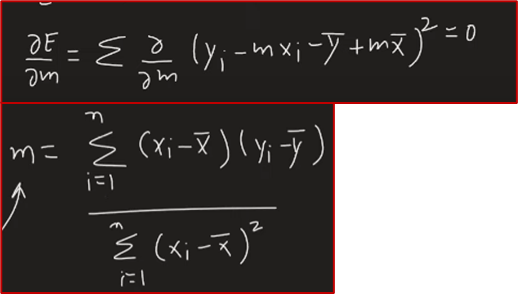 ∂E/∂m = Σ ∂/∂m (yᵢ - mxᵢ - y̅ + mx̅)² = 0
m = Σᵢ₌₁ⁿ (xᵢ - x̅)(yᵢ - y̅)
Σᵢ₌₁ⁿ (xᵢ - x̅)²